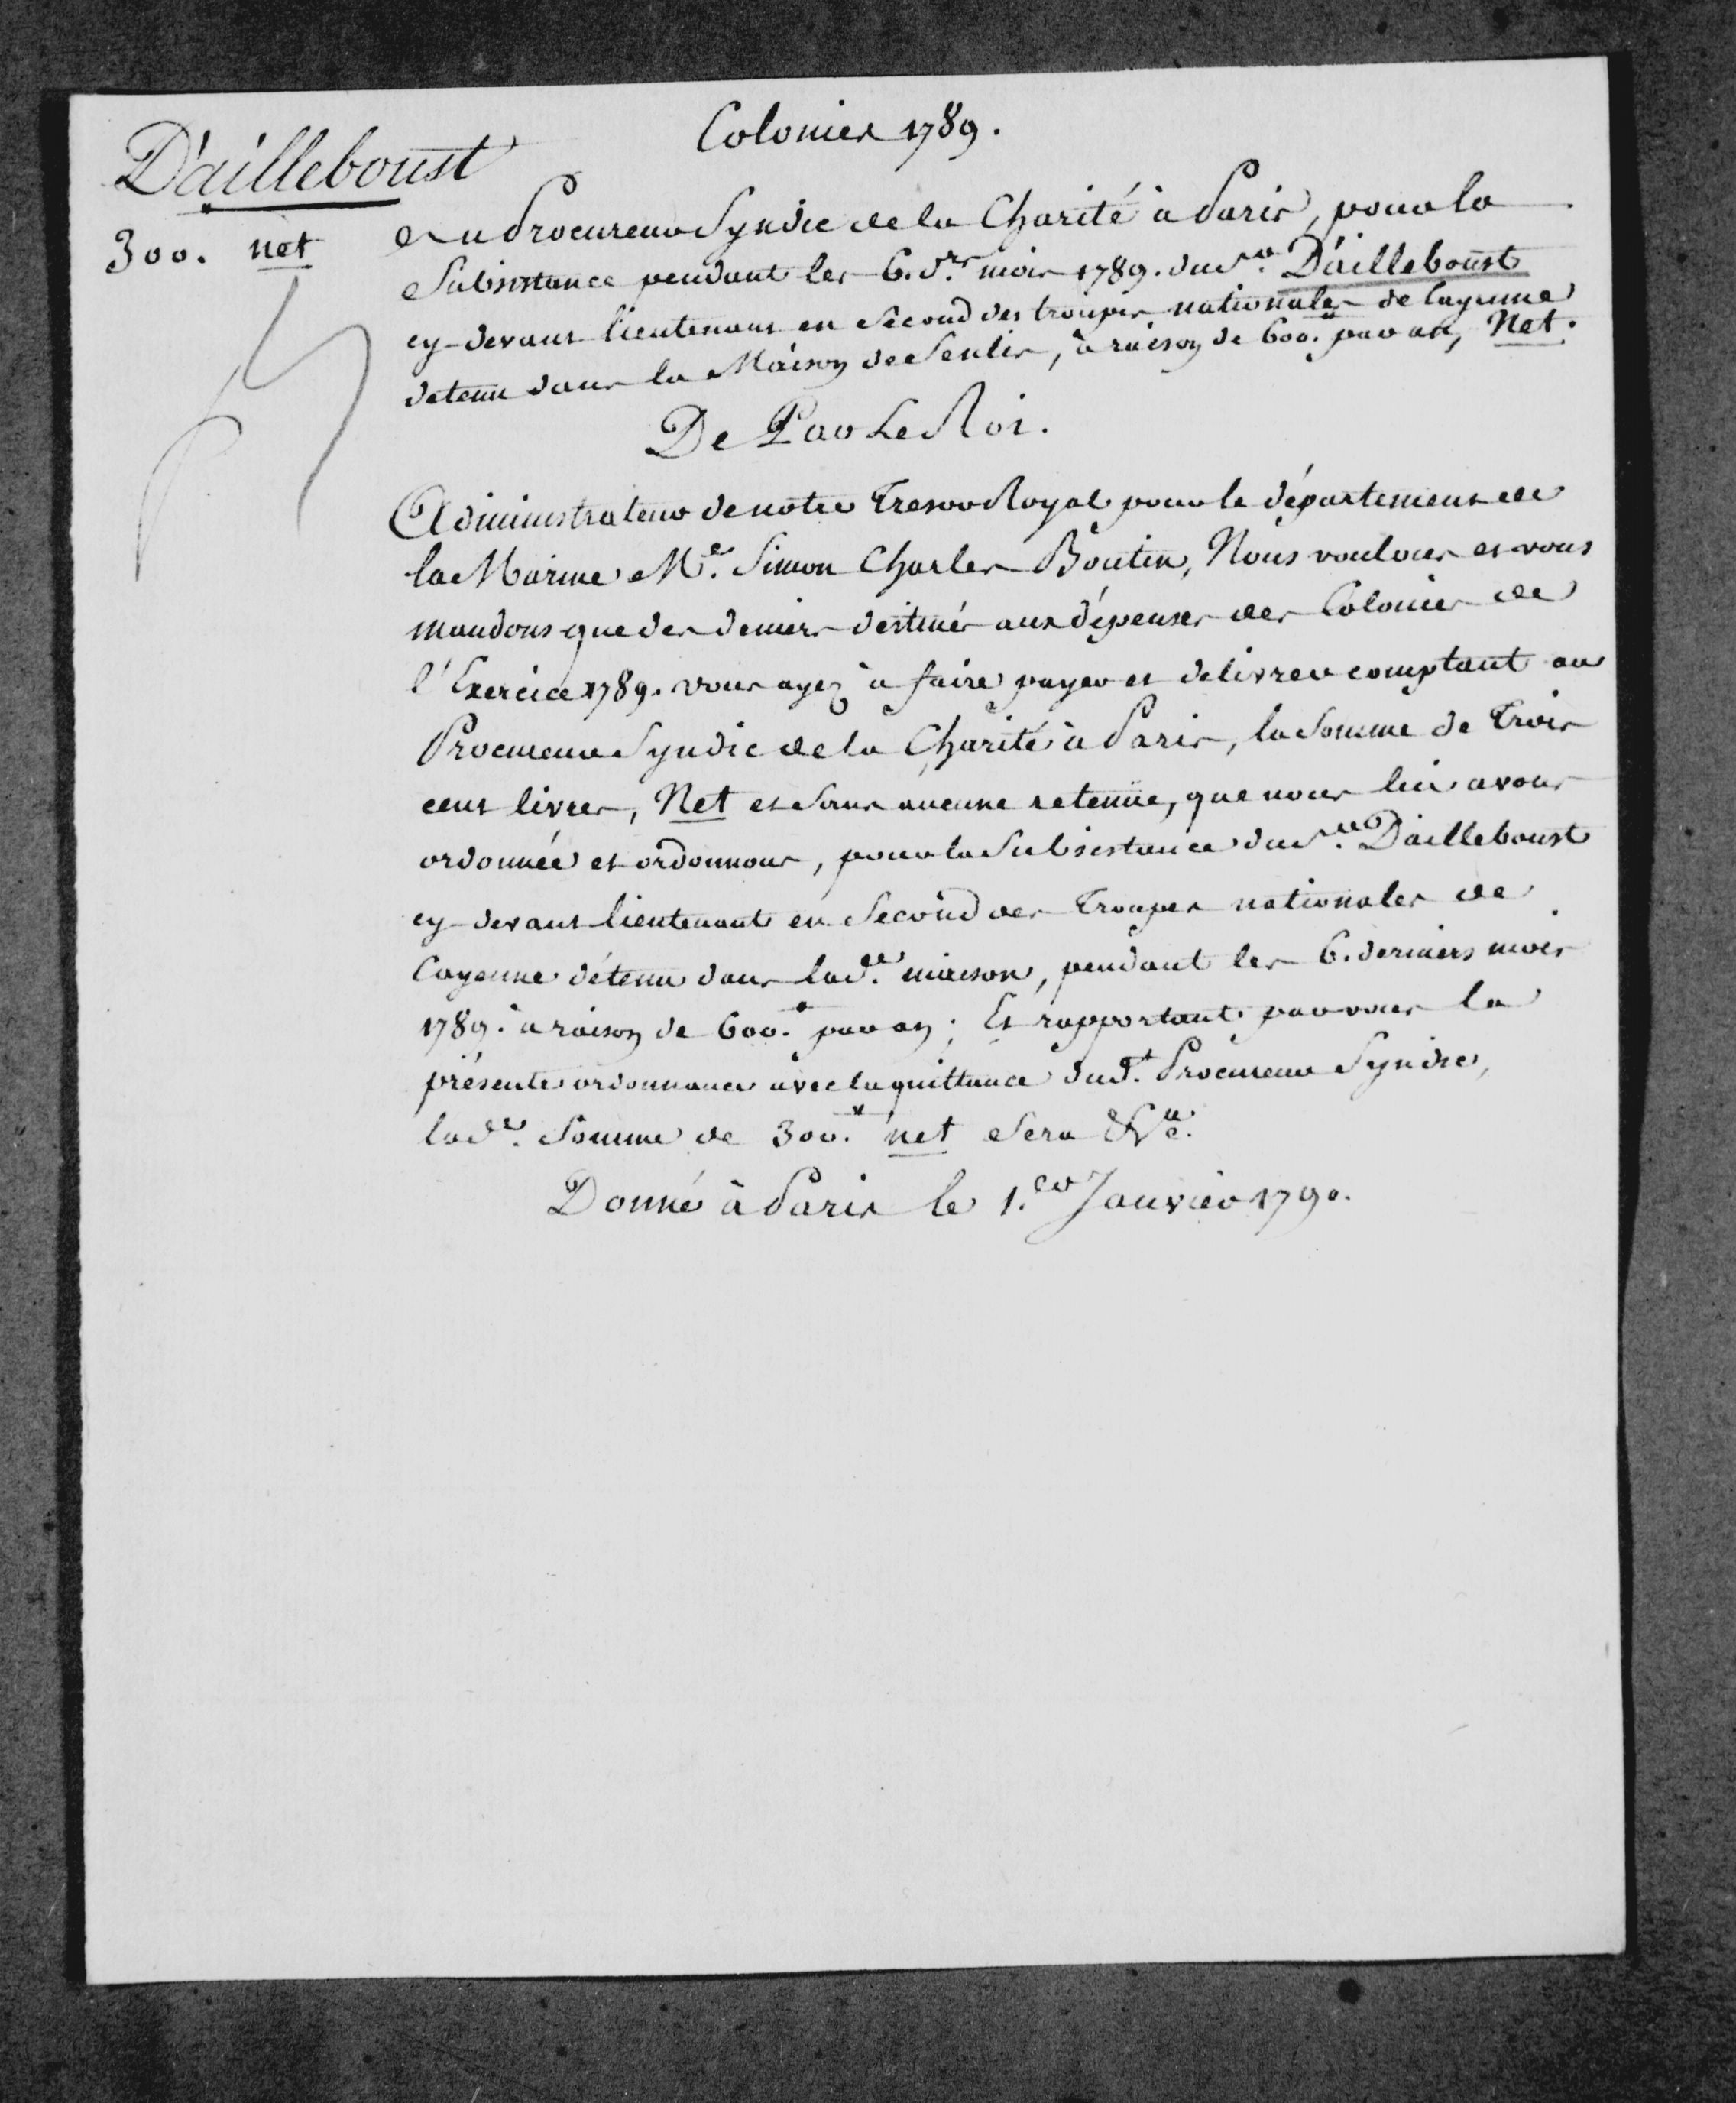 Colonies 1789.
D'ailleboust
300.# net
Au Procureur Syndic de la Charité à Paris, pour la
Subsistance pendant les 6. d.ers mois 1789. du S.r D'ailleboust
cy-devant lieutenant en Second des troupes nationales de Cayenne
detenu dans la Maison de Senlis, à raison de 600.# par an, Net.
De Par Le Roi.
Administrateur de notre Tresor Royal pour le département de
la Marine M.e Simon Charles Boutin, Nous voulons et vous
mandons que des deniers destinés aux dépenses des Colonies de
l'Exercice 1789. vous ayez à faire payer et delivrer comptant au
Procureur Syndic de la Charité à Paris, la Somme de Trois
cent livres, Net et Sans aucune retenüe, que nous lui avons
ordonnée et ordonnons, pour la Subsistance du S.r D'ailleboust
cy-devant lieutenant en Second des Troupes nationales de
Cayenne détenu dans lad.e maison, pendant les 6. derniers mois
1789. à raison de 600.# par an; Et rapportant par vous la
présente ordonnance avec la quittance dud.t Procureur Syndic,
lad.e Somme de 300.# net Sera &c.a
Donné à Paris le 1.er Janvier 1790.